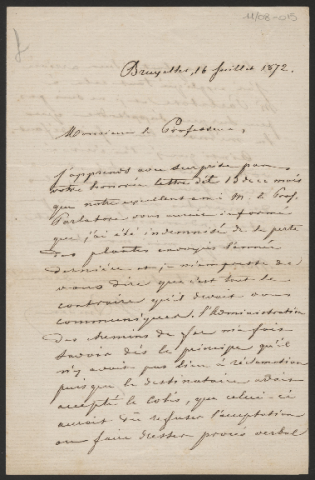 11/08-03
Bruxelles, 16 Juillet 1872.
Monsieur le Professeur,
J'apprends avec surprise par
votre honorée lettre dét 13 de ce mois
que notre excellent ami M. le Prof.
Parlatore vous aurait informé
que j'ai été indemnisé de la perte
des plantes envoyés l'année
dernière et je m'empresse de
vous dire que c'est tout le
contraire qu'il devait vous
communiquer. l'Administration
des chemins de fer m'a fait
savoir dès le principe qu'il
n'y avait pas lieu à réclamation
puisque le destinataire avait
accepté le colis, que celui-ci
aurait dû refuser l'acceptation
ou faire dresser procès verbal